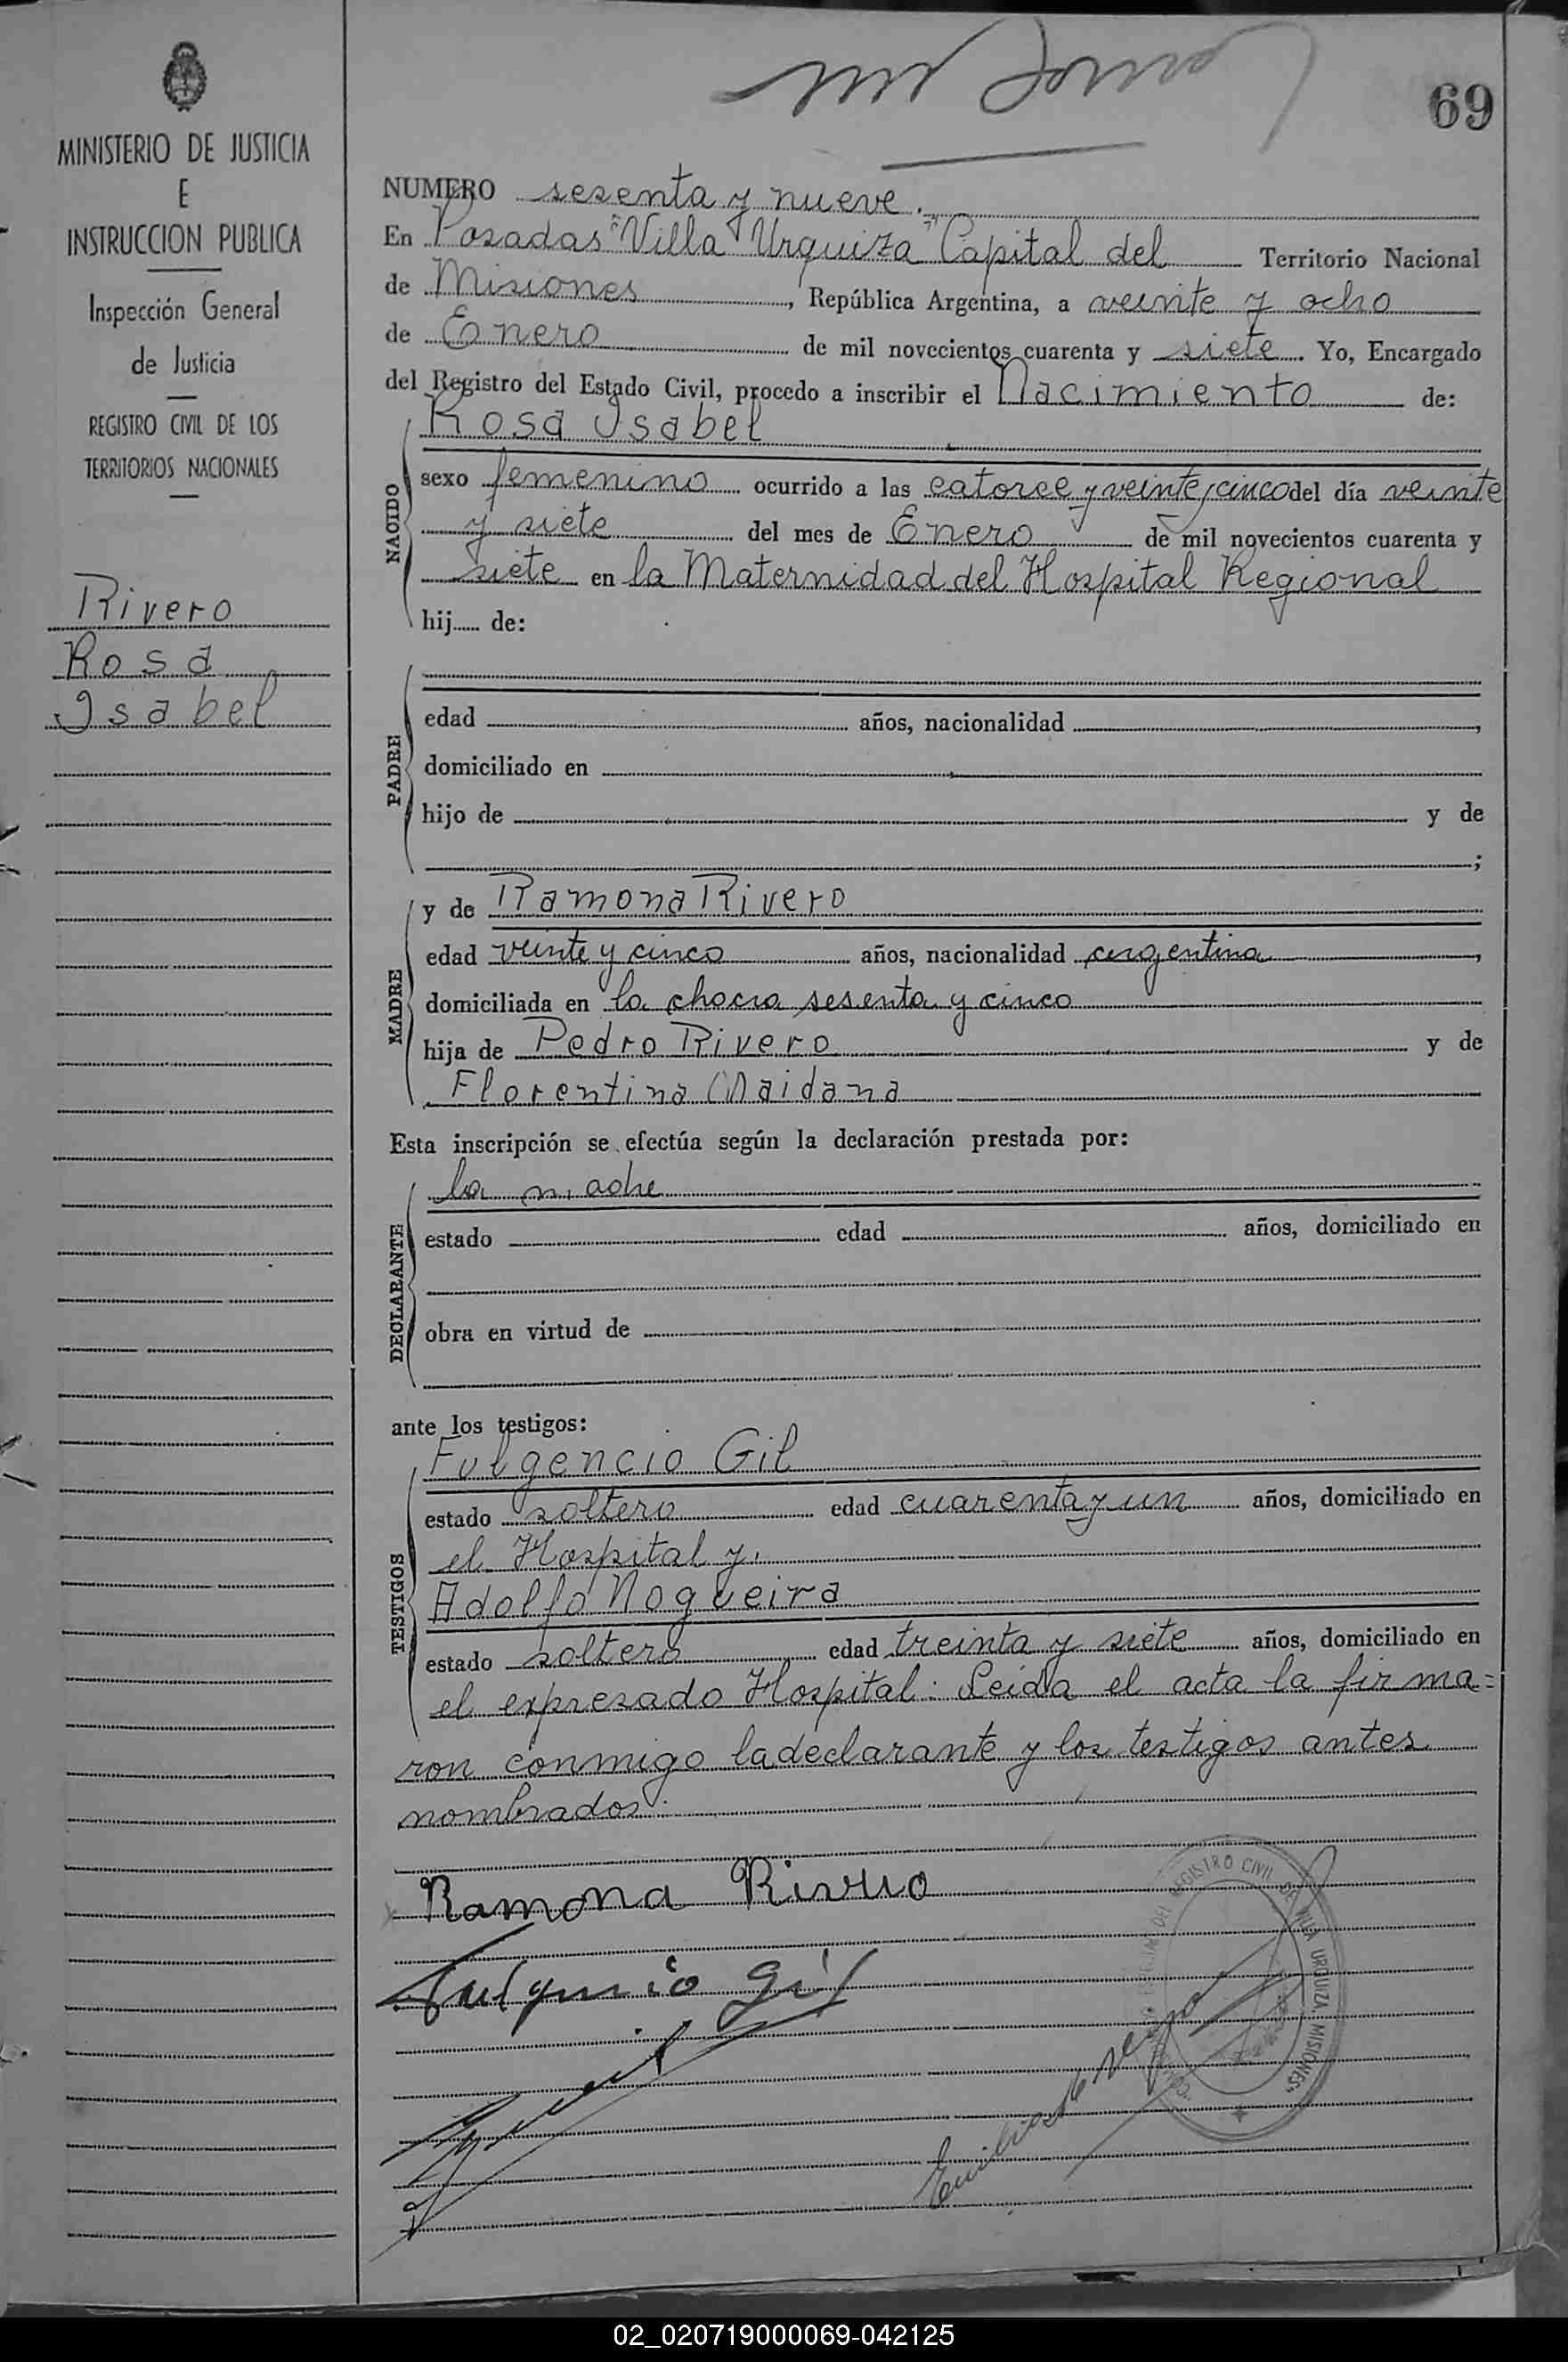 69
MINISTERIO DE JUSTICIA
E
INSTRUCCION PUBLICA
Inspección General
de Justicia
REGISTRO CIVIL DE LOS
TERRITORIOS NACIONALES
Rivero
Rosa
Isabel
NUMERO sesenta y nueve.
En Posadas "Villa Urquiza" Capital del Territorio Nacional
de Misiones, República Argentina, a veinte y ocho
de Enero de mil novecientos cuarenta y siete. Yo, Encargado
del Registro del Estado Civil, procedo a inscribir el Nacimiento de:
Rosa Isabel
NACIDO
sexo femenino ocurrido a las catorce y veinte y cinco del día veinte
y siete del mes de Enero de mil novecientos cuarenta y
siete en la Maternidad del Hospital Regional
hij de:
PADRE
edad años, nacionalidad ,
domiciliado en
hijo de y de
;
MADRE
y de Ramona Rivero
edad veinte y cinco años, nacionalidad argentina,
domiciliada en la chacra sesenta y cinco
hija de Pedro Rivero y de
Florentina Maidana
Esta inscripción se efectúa según la declaración prestada por:
DECLARANTE
la madre
estado edad años, domiciliado en
obra en virtud de
ante los testigos:
TESTIGOS
Fulgencio Gil
estado soltero edad cuarenta y un años, domiciliado en
el Hospital y.
Adolfo Nogueira
estado soltero edad treinta y siete años, domiciliado en
el expresado Hospital: Leida el acta la firma=
ron conmigo la declarante y los testigos antes
nombrados.
Ramona Rivero
Fulgencio Gil
REGISTRO CIVIL DE VILLA URQUIZA, MISIONES
02_020719000069-042125